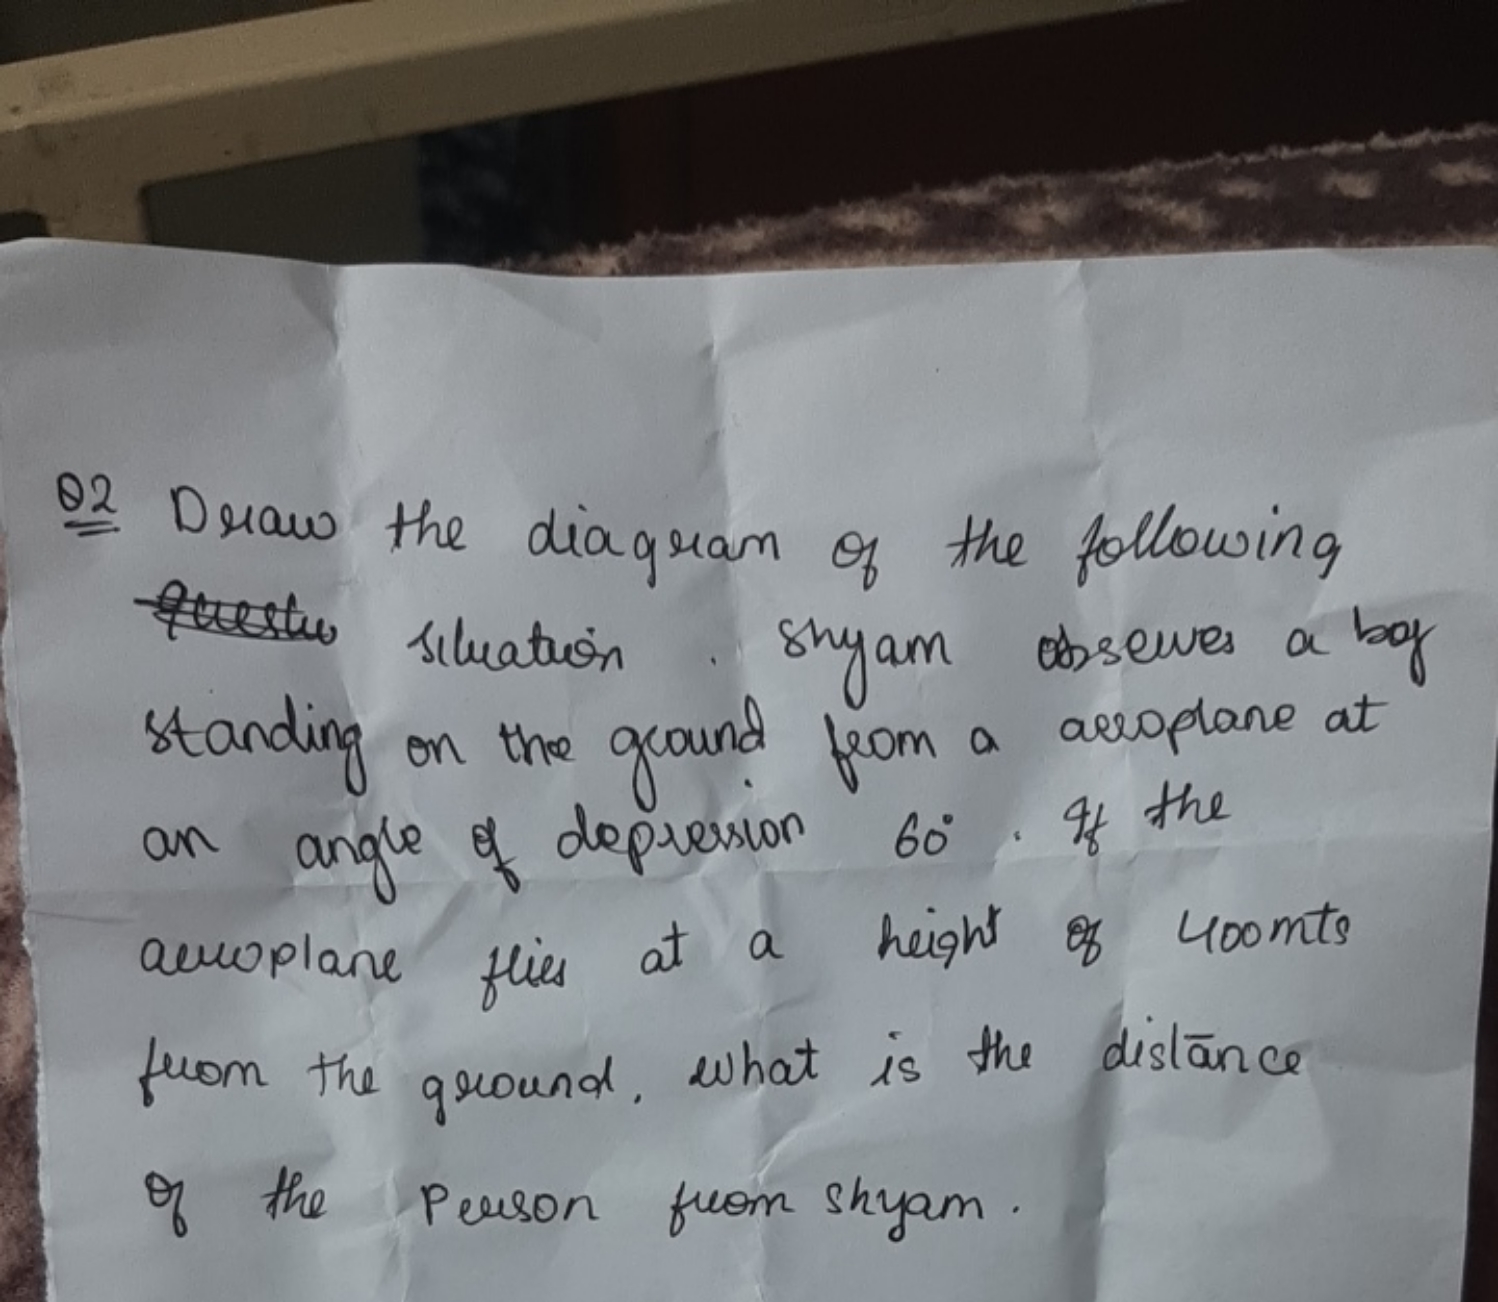 Q2 Draw the diagram of the following
situation. Shyam observes a boy
standing on the ground from a aeroplane at
an angle of depression 60°. If the
aeroplane flies at a height of 400mts
from the ground, what is the distance
of the Person from shyam.